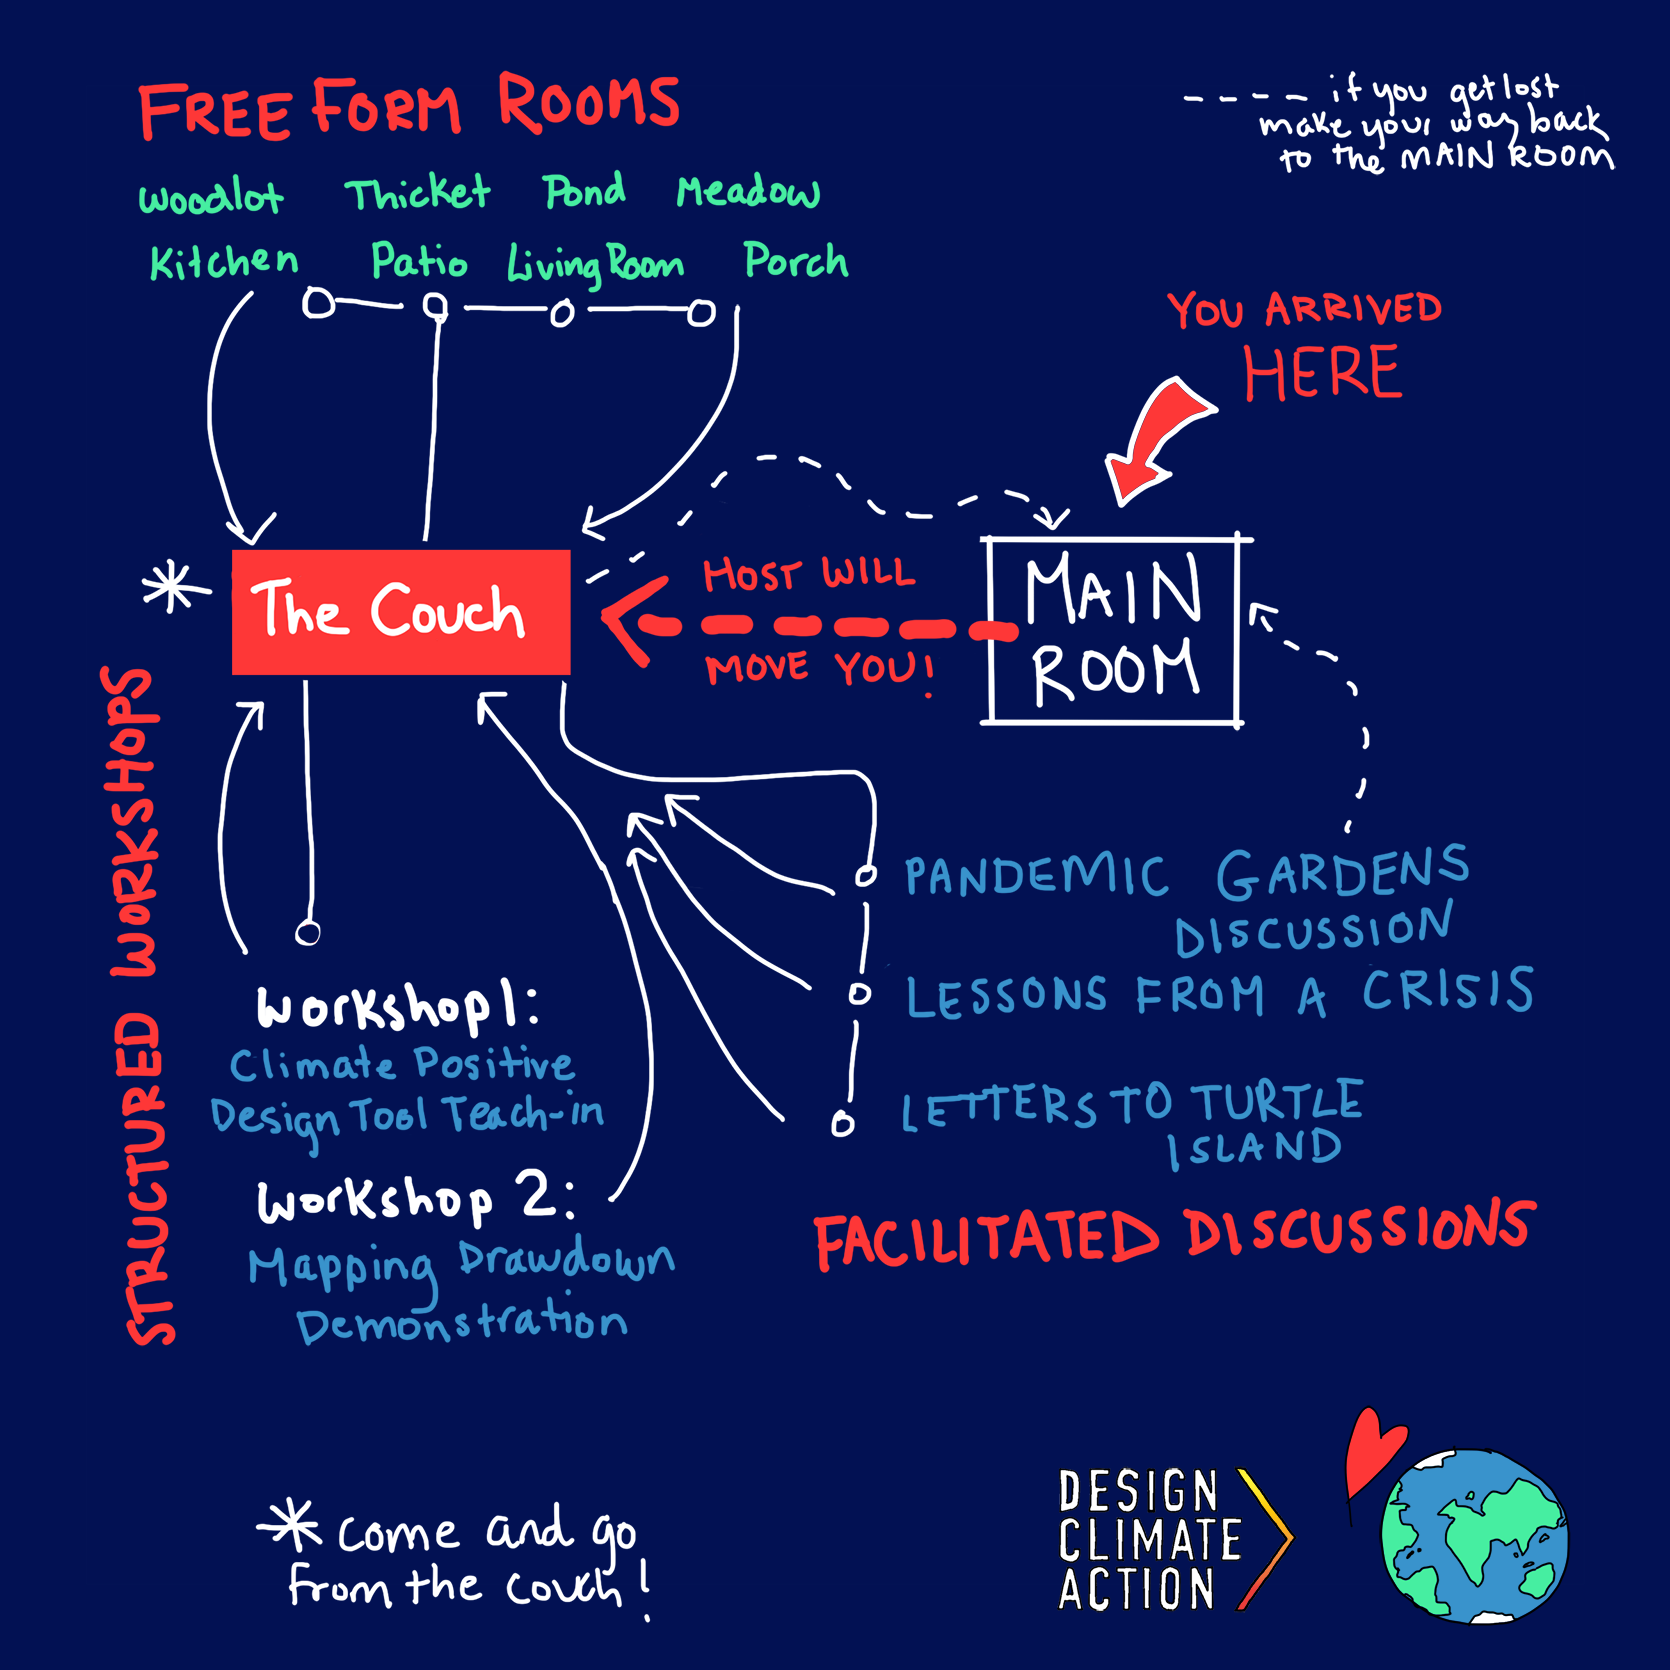 FREE FORM ROOMS
Woodlot Thicket Pond Meadow
Kitchen Patio Living Room Porch
---- if you get lost
make your way back
to the MAIN ROOM
YOU ARRIVED
HERE
MAIN
ROOM
HOST WILL
MOVE YOU!
* The Couch
STRUCTURED WORKSHOPS
Workshop 1:
Climate Positive
Design Tool Teach-in
Workshop 2:
Mapping Drawdown
Demonstration
PANDEMIC GARDENS
DISCUSSION
LESSONS FROM A CRISIS
LETTERS TO TURTLE
ISLAND
FACILITATED DISCUSSIONS
* come and go
from the couch!
DESIGN
CLIMATE
ACTION